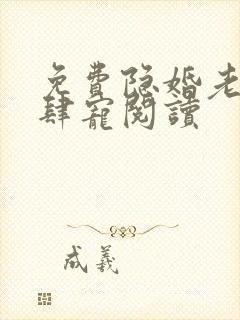 免費隐婚老
肆寵閱讀
成羲